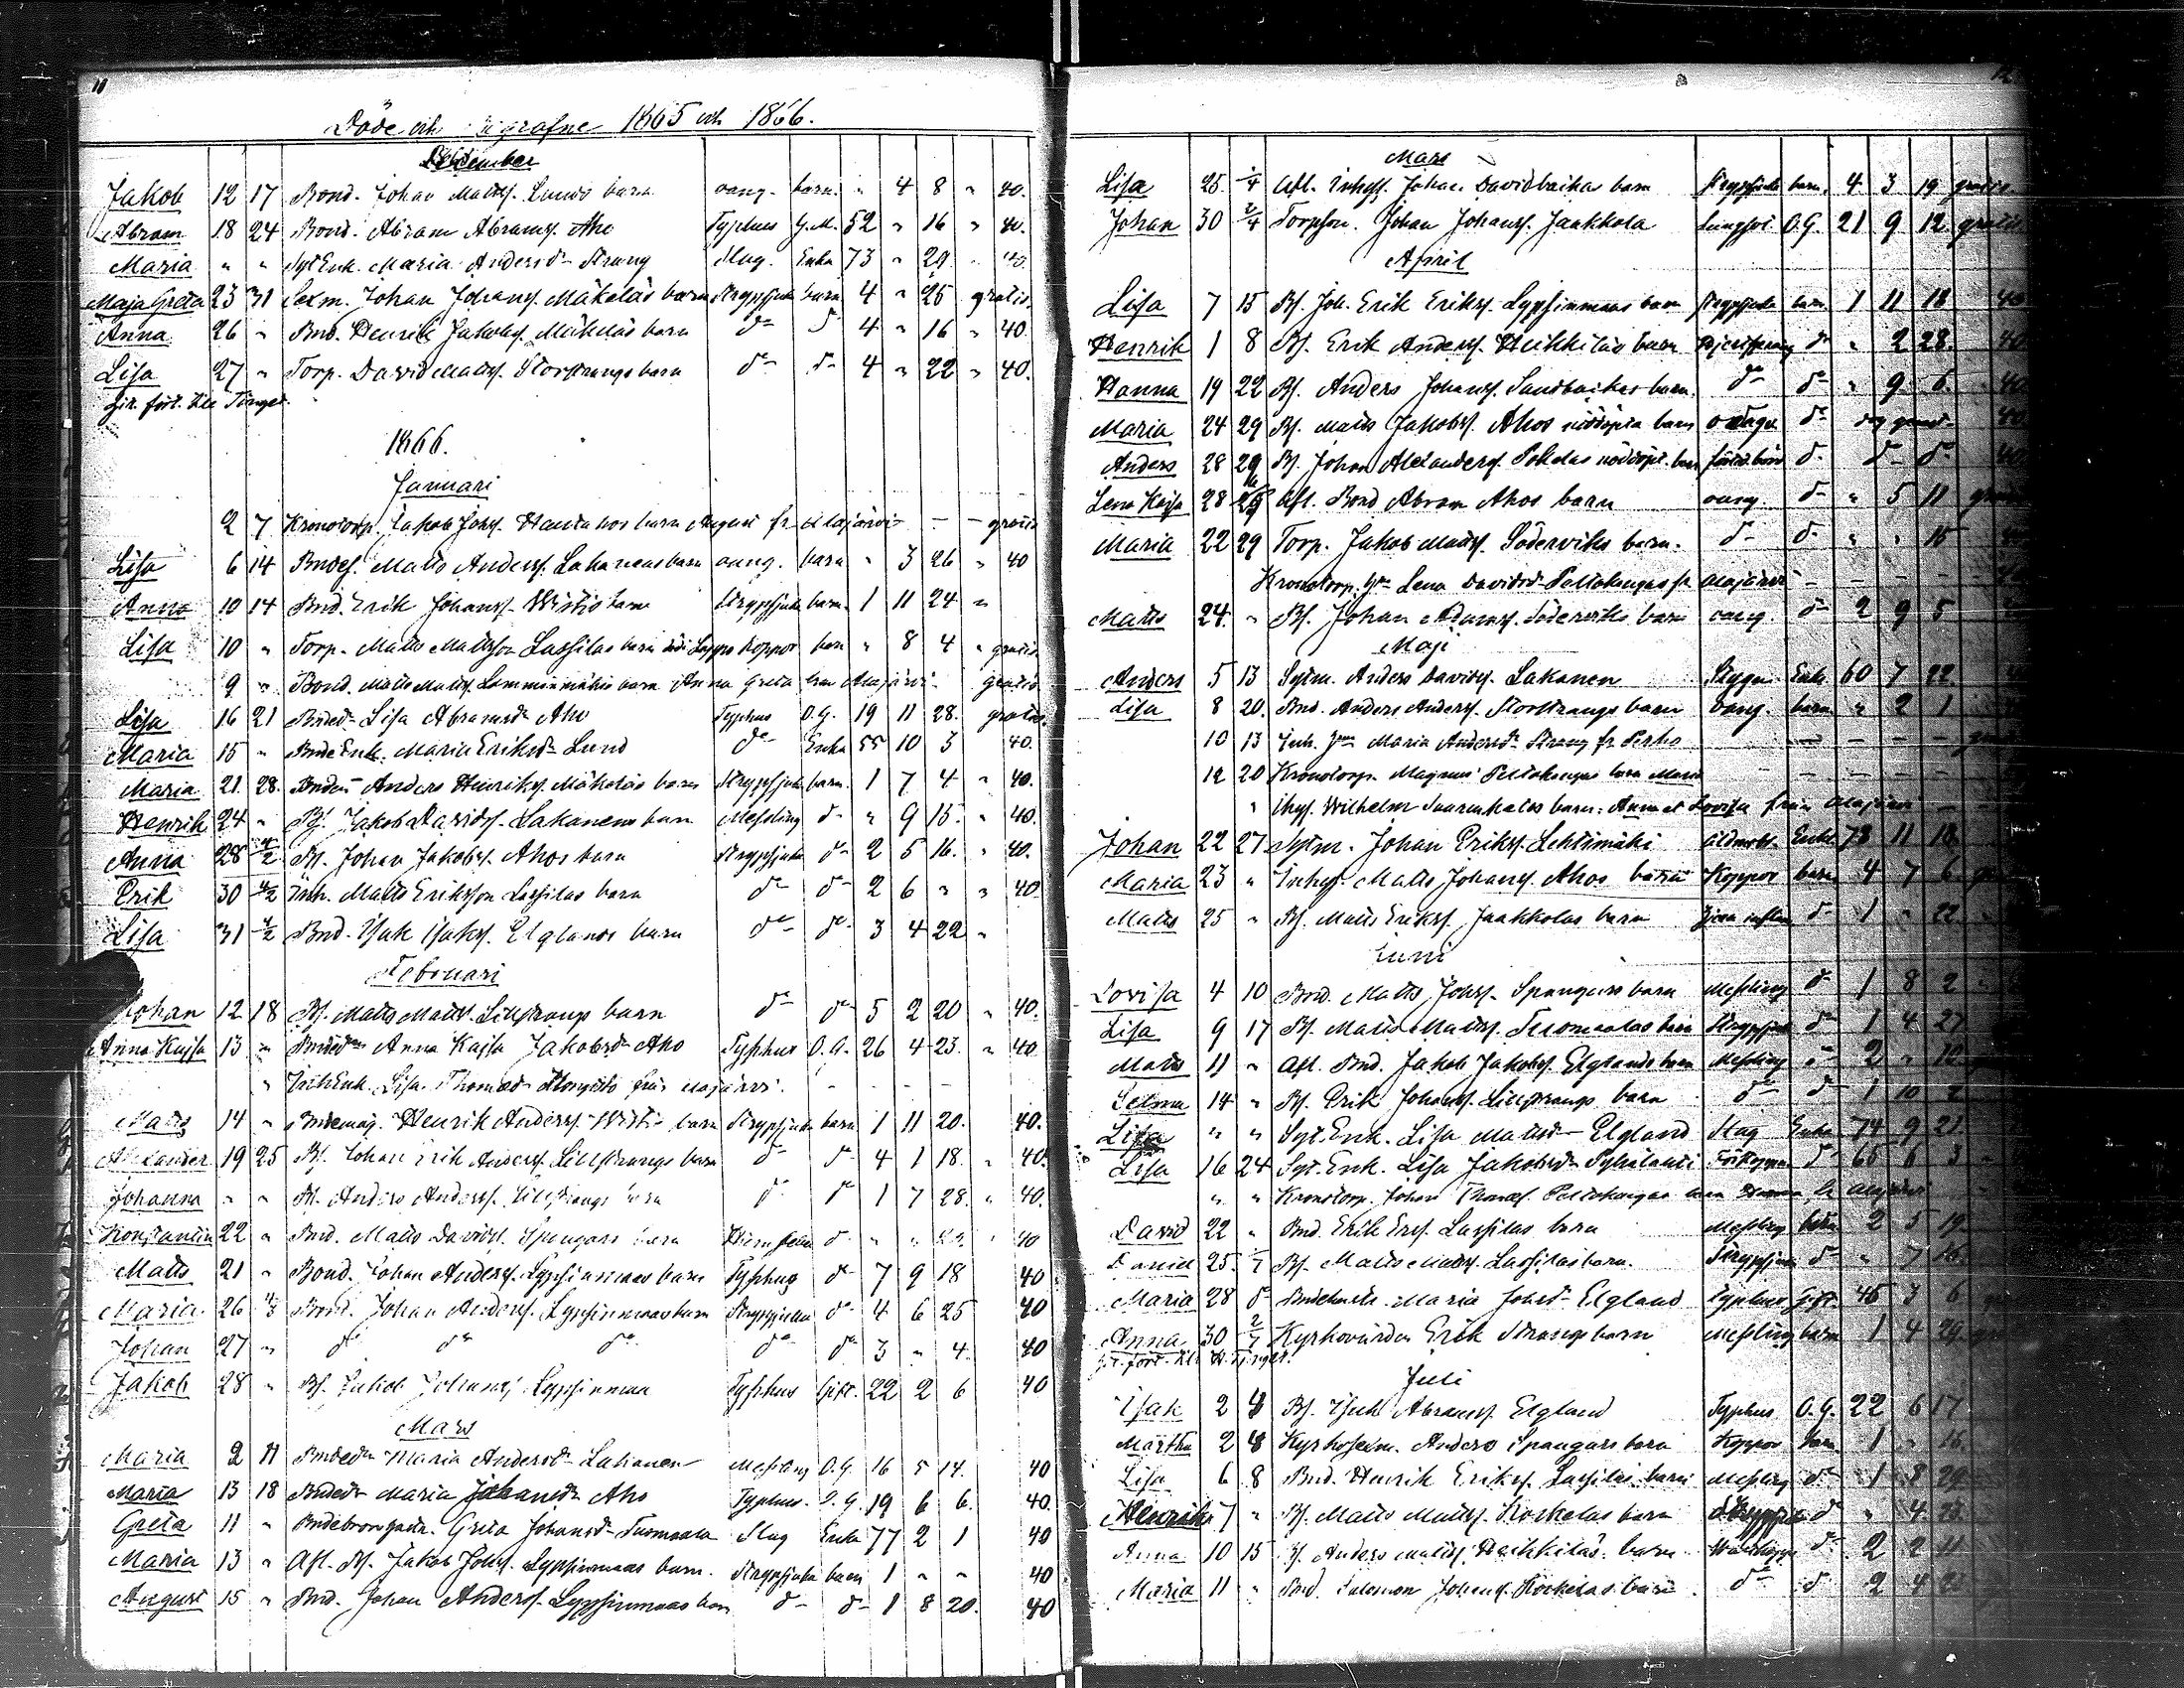 11
Döde och Begrafne 1865 och 1866.
December
Jakob 12 17 Bond. Johan Mattss. Lunds barn oang. barn. " 4 8 " 40.
Abram 18 24 Bond. Abram Abramss. Aho Typhus G.M. 52 " 16 " 40.
Maria " " Syt Enk. Maria Andersdr Strang Slag. Enka 73 " 29 " 40.
Maja Greta 23 31 Sexm. Johan Johanss. Mäkeläs barn Strypsjuka barn 4 " 25 gratis
Anna 26 " Bnd. Henrik Jakobss. Mäkeläs barn do do 4 " 16 " 40.
Lisa 27 " Torp. David Mattss. Storstrangs barn do do 4 " 22 " 40.
fört. till Tinget.
1866.
Januari
2 7 Kronotorp. Jakob Johss. barn August fr. Alajärvi — — gratis
Lisa 6 14 Bndes. Matts Anderss. Lakanens barn oang. barn " 3 26 " 40
Anna 10 14 Bnd. Erik Johanss. Wistis barn Strypsjuka barn 1 11 24 "
Lisa 10 " Torp. Matts Mattsson Lassilas barn Koppor barn " 8 4 " gratis
9 " Bond. Matts Mattss. Lamminmäkis barn Anna Greta från Alajärvi gratis
Lisa 16 21 Bndedr Lisa Abramsdr Aho Typhus O.G. 19 11 28. gratis
Maria 15 " Bnde Enk. Maria Eriksdr Lund do Enka 55 10 3 40.
Maria 21. 28. Anders Henrikss. Mäkeläs barn Strypsjuka barn. 1 7 4 " 40.
Henrik 24 " Bs. Jakob Davidss. Lakanens barn Messling do " 9 15. " 40.
Anna 28 4/2 Bs. Johan Jakobss. Ahos barn Strypsjuka do 2 5 16. " 40.
Erik 30 4/2 Inh. Matts Eriksson Lassilas barn do do 2 6 " " 40
Lisa 31 4/2 Bnd. Isak Isakss. Elglands barn do do 3 4 22 "
Februari
Johan 12 18 Bs. Matts Mattss. Lillstrangs barn do do 5 2 20 " 40.
Anna Kajsa 13 " Anna Kajsa Jakobsdr Aho Typhus O.G. 26 4 23. " 40
" Inh Enk. Lisa Thomasdr från Alajärvi. — — — —
Matts 14 " Bndemåg. Henrik Anderss. Wisti barn Strypsjuka barn 1 11 20. 40.
Alexander 19 25 Bs. Johan Erik Anderss. Lillstrangs barn do do 4 1 18. " 40.
Johanna " " Bs. Anders Anderss. Lillstrangs barn do do 1 7 28. " 40.
Konstantin 22 " Bnd. Matts Davidss. Spengars barn do " " 40
Matts 21 " Bond. Johan Anderss. Lypsinmaas barn Typhus do 7 9 18 40
Maria. 26 4/3 Bond. Johan Anderss. Lypsinmaas barn Strypsjuka do 4 6 25 40
Johan 27 " do do do do do 3 " 4. 40
Jakob 28 " Bs. Jakob Johanss. Lypsinmaa Typhus Gift. 22 2 6 40
Mars
Maria 2 11 Bndedr Maria Andersdr Lakanen Messling O.G. 16 5 14. 40
Maria 13 18 Bndedr Maria Johansdr Aho Typhus. O.G. 19 6 6. 40.
Greta 11 " Greta Johansdr Tuomaala Slag Enka 77 2 1 40
Maria 13 " Afl. Bs. Jakob Johss. Lypsinmaas barn. Strypsjuka barn 1 " " 40
August 15 " Bnd. Johan Anderss. Lypsinmaas barn do do 1 8 20. 40
12
Mars
Lisa 25. 1/4 Afl. Inhyss. Johan Davidbacka barn Strypsjuka barn. 4 3 19 gratis
Johan 30 2/4 Torpson. Johan Johanss. Jaakkola Lungsot O.G. 21 9 12. gratis
April
Lisa 7 15 Bs. Joh. Erik Erikss. Lypsinmaas barn Strypsjuka barn 1 11 18 40
Henrik 1 8 Bs. Erik Anderss. Heikkiläs barn do " 2 28. 40
Hanna 19 22 Bs. Anders Johanss. Sandbackas barn. do do " 9 6. 40
Maria 24 29 Bs. Matts Jakobss. Ahos nöddöpta barn do 40
Anders 28 29 Bs. Johan Alexanderss. Pokelas nöddöpt. barn do do do 40
Lena Kajsa 28 29 Afl. Bond Abram Ahos barn oang. do " 5 11
Maria 22 29 Torp. Jakob Mattss. Söderviks barn. do do " " 15
Kronotorp. Lena Davidsdr Peltokangas fr. Alajärvi — — — —
Matts 24. " Bs. Johan Adamss. Söderviks barn oang. do 2 9 5
Maji
Anders 5 13 Sytm. Anders Davidss. Lakanen Enkl. 60 7 22
Lisa 8 20. Bnd. Anders Anderss. Storstrangs barn oang. barn " 2 1
10 13 Inh. Maria Andersdr Strang fr. Perho — — — —
12 20 Kronotorp. Magnus Peltokangas barn Matts — — — —
" Inhys. Wilhelm barn: Anna et Lovisa från Alajärvi —
Johan 22 27 Sytm. Johan Erikss. Lehtimäki ålderdom. Enkl. 73 11 18
Maria 23 " Inhys. Matts Johanss. Ahos barn Koppor barn 4 7 6
Matts 25 " Bs. Matts Erikss. Jaakkolas barn do 1 " 22
Juni
Lovisa 4 10 Bnd. Matts Johss. Spengars barn Messling do 1 8 2
Lisa 9 17 Bs. Matts Mattss. Tuomaalas barn Strypsjuk. do 1 4 27
Matts 11 " Afl. Bnd. Jakob Jakobss. Elglands barn Messling do 2 " 12
Selma 14 " Bs. Erik Johanss. Lillstrangs barn do do 1 10 2
Lisa " " Syt. Enk. Lisa Mattsdr Elgland Slag Enka 74 9 21
Lisa 16 24 Syt. Enk. Lisa Jakobsdr do 65 6 3
" " Kronotorp. Johan Thomass. Peltokangas barn fr. Alajärvi
David 22 " Bnd. Erik Erss. Lassilas barn Messling barn 2 5 19
Daniel 25. 1/7 Bs. Matts Mattss. Lassilas barn. Strypsjuka do " 7 16
Maria 28 do Maria Johsdr Elgland Typhus Gift. 45 3 6
Anna 30 2/7 Kyrkovärden Erik Strangs barn Messling barn 1 4 29
fört. till Tinget.
Juli
Isak 2 8 Bs. Isak Abramss. Elgland Typhus O.G. 22 6 17
Märtha 2 8 Kyrkosexm. Anders Spangars barn Koppor barn 1 " 16.
Lisa 6 8 Bnd. Henrik Erikss. Lassilas barn Messling do 1 8 29
Henrik 7 " Bs. Matts Mattss. Koskelas barn Strypsjuk do " 4 23.
Anna 10 15 Bs. Anders Mattss. Heikkilas barn do 2 2 11
Maria 11 " Bnd. Salomon Johanss. Koskelas barn do do 2 4